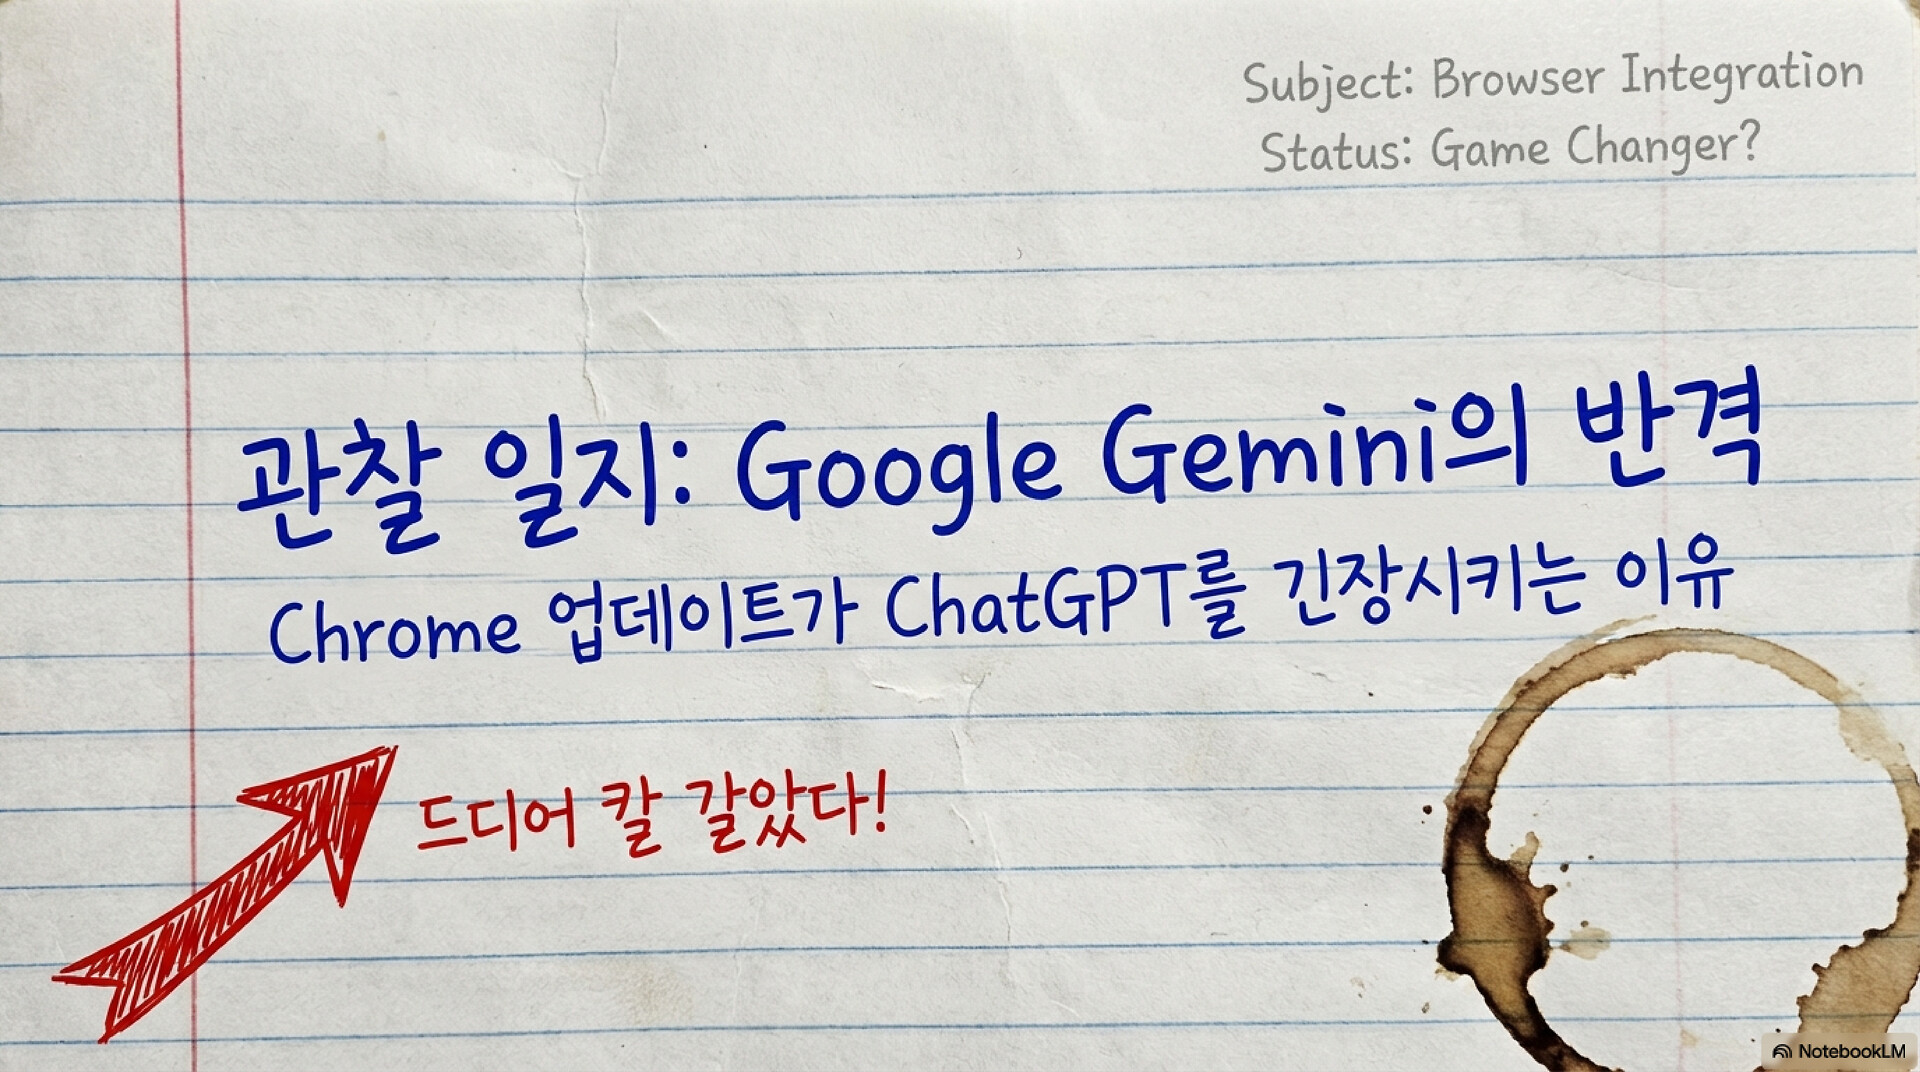 Subject: Browser Integration
Status: Game Changer?
관찰 일지: Google Gemini의 반격
Chrome 업데이트가 ChatGPT를 긴장시키는 이유
드디어 칼 갈았다!
NotebookLM